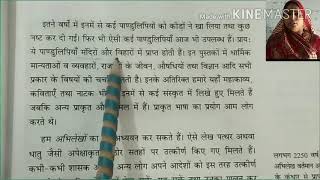 Made with KINEMASTER
इतने वर्षों में इनमें से कई पाण्डुलिपियों को कीड़ों ने खा लिया तथा कुछ
नष्ट कर दी गईं। फिर भी ऐसी कई पाण्डुलिपियाँ आज भी उपलब्ध हैं। प्रायः
ये पाण्डुलिपियाँ मंदिरों और विहारों में प्राप्त होती हैं। इन पुस्तकों में धार्मिक
मान्यताओं व व्यवहारों, राजाओं के जीवन, औषधियों तथा विज्ञान आदि सभी
प्रकार के विषयों की चर्चा मिलती है। इनके अतिरिक्त हमारे यहाँ महाकाव्य,
कविताएँ तथा नाटक भी हैं। इनमें से कई संस्कृत में लिखे हुए मिलते हैं
जबकि अन्य प्राकृत और तमिल में हैं। प्राकृत भाषा का प्रयोग आम लोग
करते थे।
हम अभिलेखों का भी अध्ययन कर सकते हैं। ऐसे लेख पत्थर अथवा
धातु जैसी अपेक्षाकृत कठोर सतहों पर उत्कीर्ण
कभी-कभी शासक अथवा अन्य लोग अपने आदेशों को इस तरह उत्कीर्ण
लगभग 2250 वर्ष
अभिलेख वर्तमान अ
के कंधार से प्राप्त